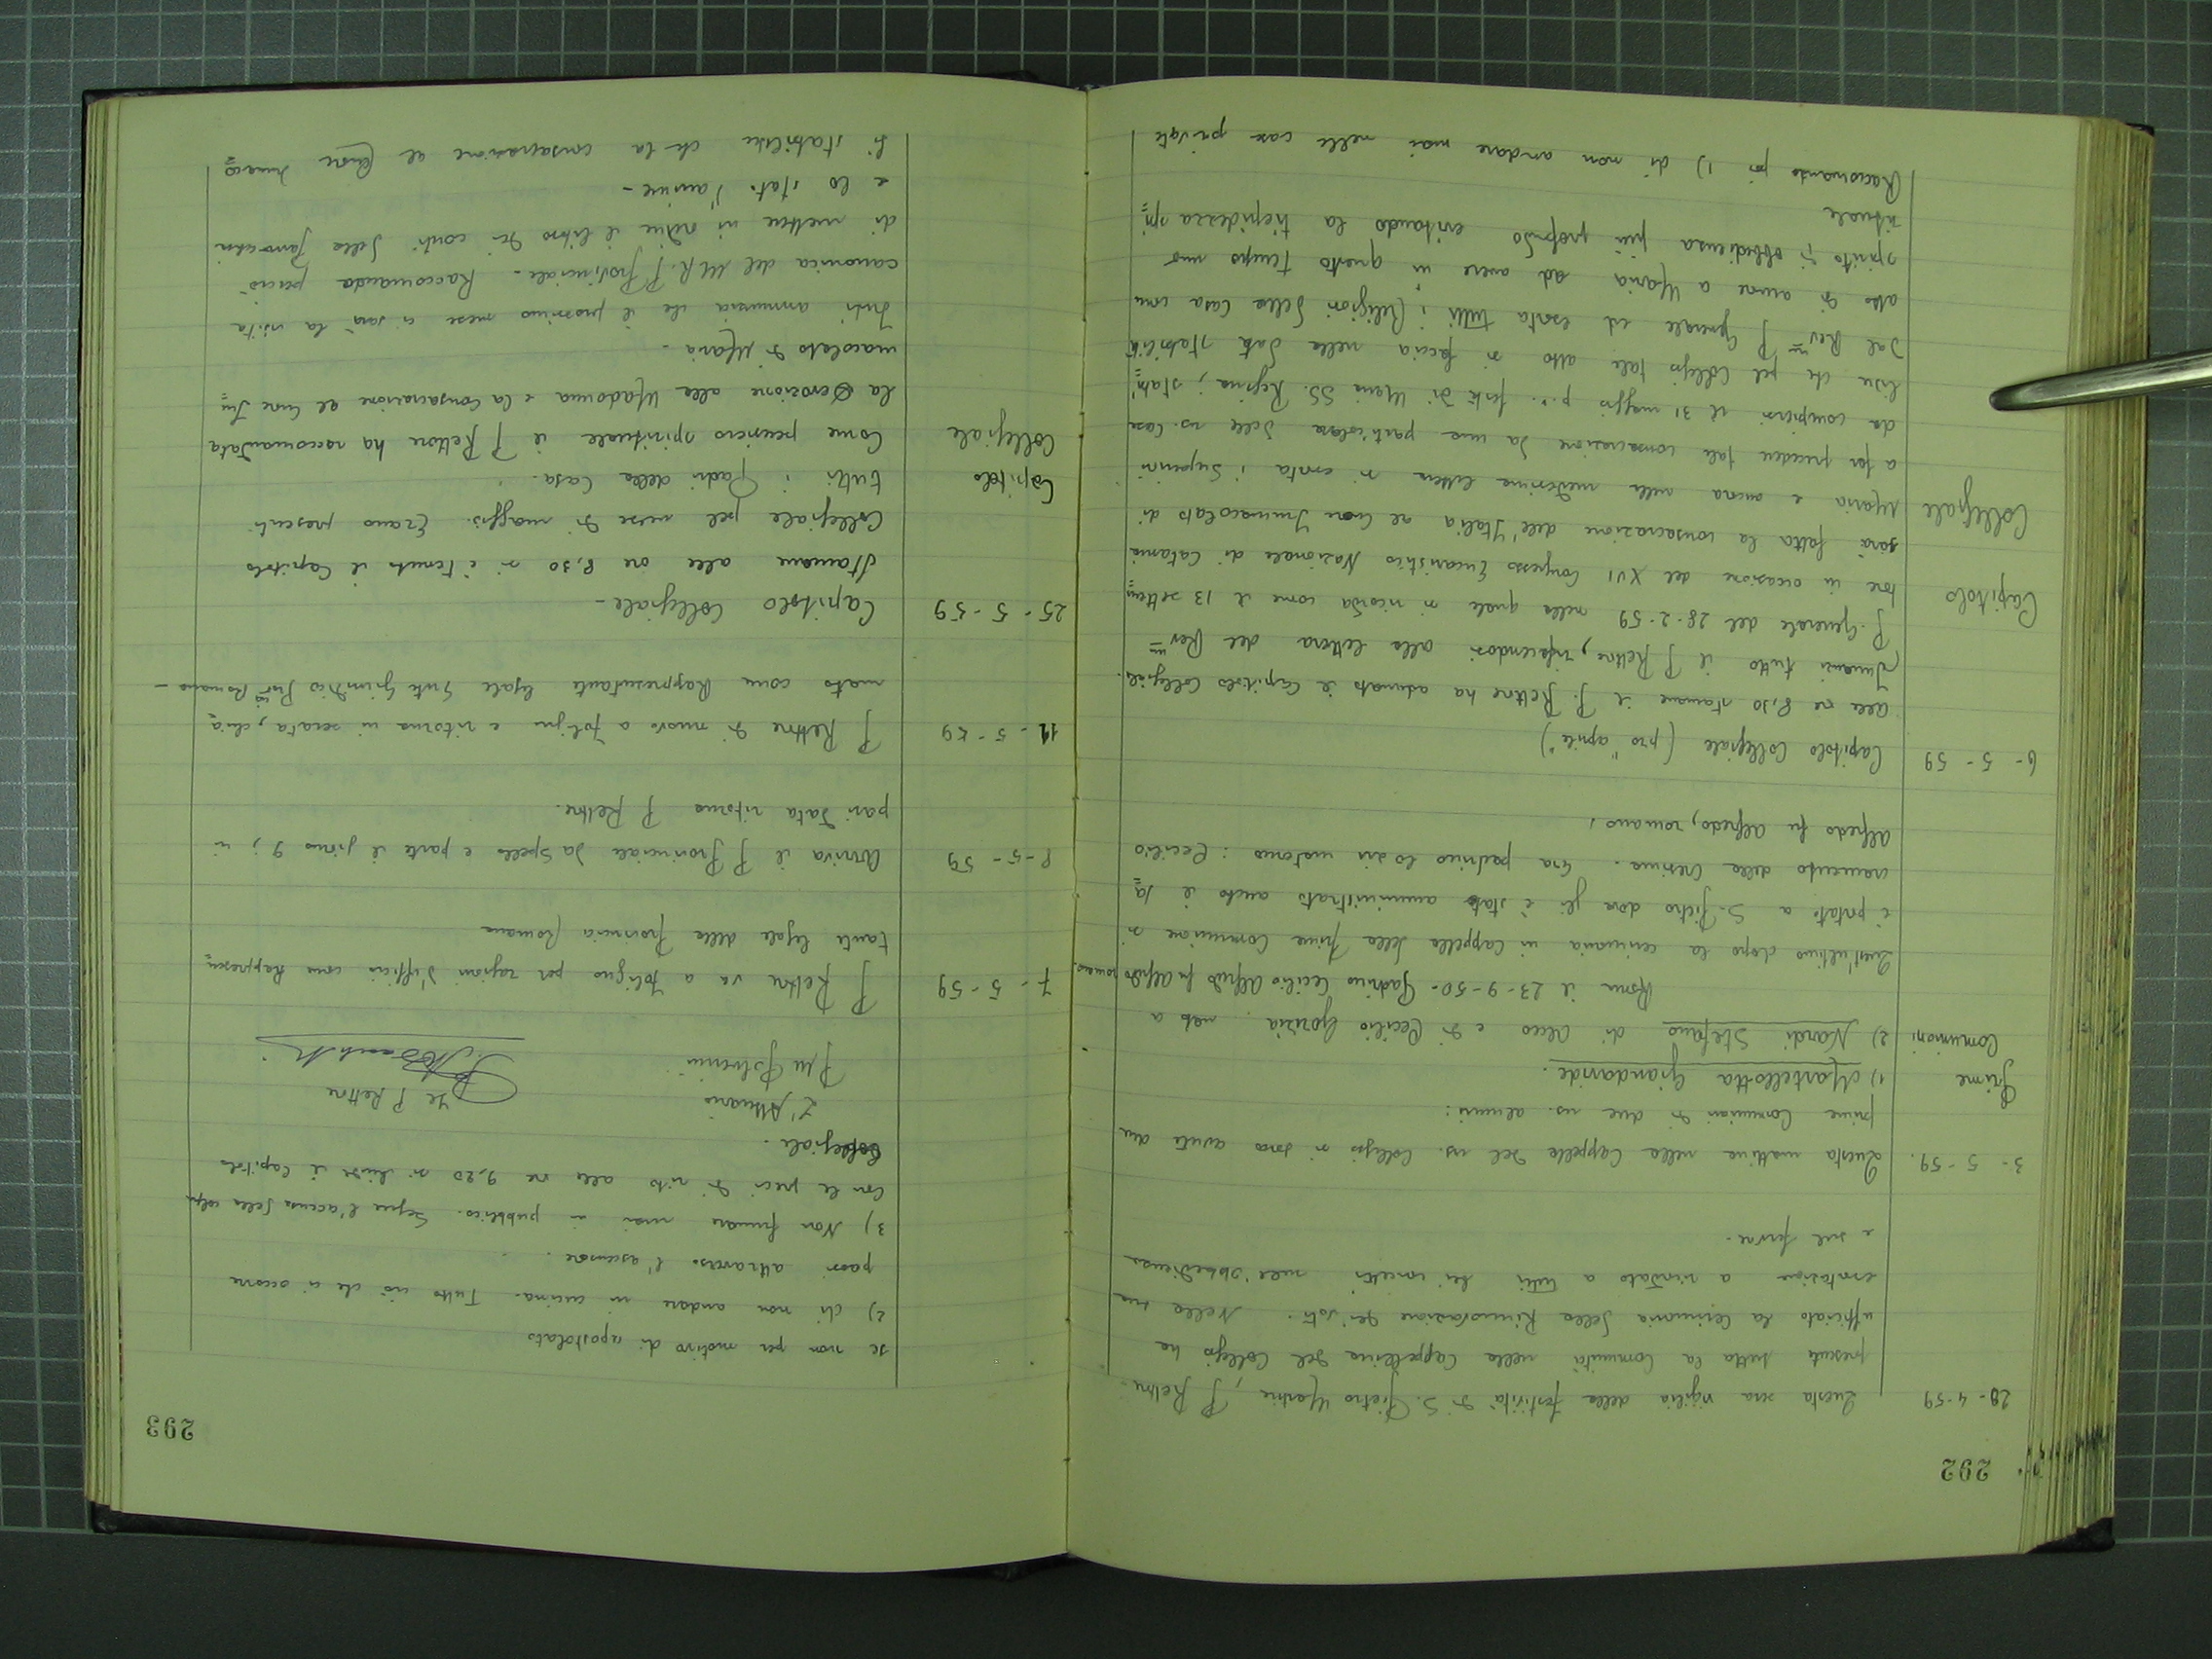 292
28-4-59 Questa sera vigilia della festività di S. Pietro Martire, P. Rettore
presente tutta la Comunità nella Cappellina del Collegio ha
ufficiato la Cerimonia della Rinnovazione dei voti. Nella sua
esortazione a rivolto a tutti bei concetti sull'obbedienza
e sul fervore.
3-5-59. Questa mattina nella Cappella del ns. Collegio si sono avute due
prime Comunioni di due ns. alunni:
Prime 1) Martellotta Giandavide.
Comunioni 2) Nardi Stefano di Cleco e di Cecilio Gorizia nato a
Roma il 23-9-50- Padrino Cecilio Alfredo fu Alfredo romano.
Quest'ultimo dopo la cerimonia in Cappella della prima Comunione si
è portato a S. Pietro dove gli è stato amministrato anche il sa=
cramento della Cresima. Era padrino lo zio materno: Cecilio
Alfredo fu Alfredo, romano.
6-5-59 Capitolo Collegiale (pro "aprile")
Alle ore 8,30 stamane il P. Rettore ha adunato il Capitolo Collegiale.
Innanzi tutto il P. Rettore, rifacendosi alla lettera del Rev.mo
Capitolo P. Generale del 28-2-59 nella quale si ricorda come il 13 settem=
bre in occasione del XVI Congresso Eucaristico Nazionale di Catania
Collegiale sarà fatta la consacrazione dell'Italia al Cuore Immacolato di
Maria e ancora nella medesima lettera si esorta i Superiori
a far precedere tale consacrazione da una particolare delle ns. Case
da compiersi il 31 maggio p.v. festa di Maria SS. Regina, stabi=
lisce che pel Collegio tale atto si faccia nella data stabilita
dal Rev.mo P. Generale ed esorta tutti i Religiosi della Casa come
atto di amore a Maria ad avere in questo tempo uno
spirito di obbedienza più profondo evitando la tiepidezza spi=
rituale
Raccomanda poi 1) di non andare mai nelle case private
293
se non per motivo di apostolato
2) di non andare in cucina. Tutto ciò che ci occorre
passi attraverso l'ascensore.
3) Non fumare mai in pubblico. Segue l'accusa delle colpe
Con le preci di rito alle ore 9,20 si chiude il Capitolo
Collegiale.
L'Attuario Il P. Rettore
7-5-59 P. Rettore va a Foligno per ragioni d'ufficio come Rappresen=
tante legale della Provincia Romana
8-5-59 Arriva il P. Provinciale da Spello e parte il giorno 9; in
pari data ritorna P. Rettore.
11-5-59 P. Rettore di nuovo a Foligno e ritorna in serata, chia=
mato come Rappresentante legale Ente Giuridico Prov.cia Romana-
25-5-59 Capitolo Collegiale-
Stamane alle ore 8,30 si è tenuto il Capitolo
Collegiale pel mese di maggio. Erano presenti
Capitolo tutti i Padri della Casa.
Collegiale Come pensiero spirituale il P. Rettore ha raccomandata
la devozione alla Madonna e la Consacrazione al Cuore Im=
macolato di Maria-
Indi annunzia che il prossimo mese ci sarà la visita
canonica del M.R. P. Provinciale- Raccomanda perciò
di mettere in ordine il libro dei conti della Parrocchia
e lo stato d'anime-
Si stabilisce che la consacrazione al Cuore Immaco=